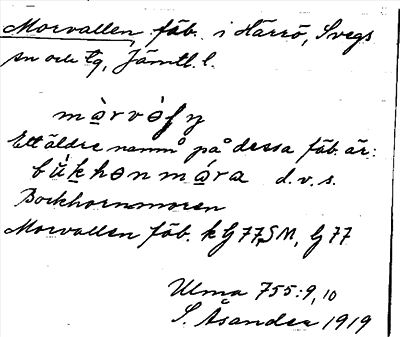 Morvallen fäb. i Härrö, Svegs
sn och tg, Jämtl. l.
Ett äldre namn på dessa fäb. är:
bùkhɘnmára d.v.s.
Bockhornmoren
Morvallen fäb. k G 77 SM, G 77
Ulma 755:9,10
S. Åsander 1919